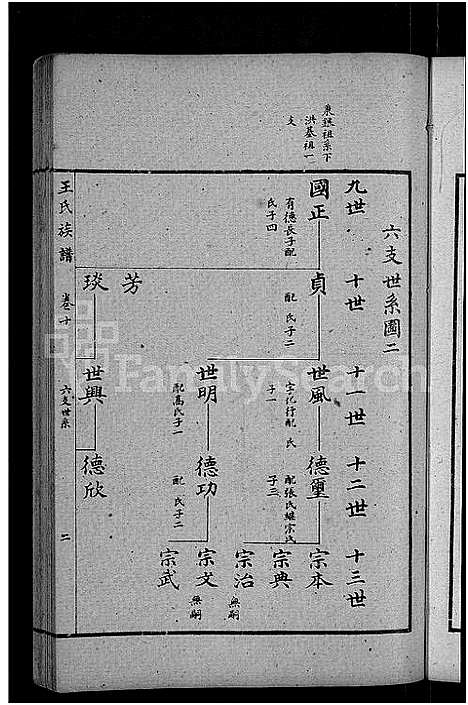 秉鈺祖系下
洪基祖一
支
六支世系圖二
九世 十世 十一世 十二世 十三世
國正
有德長子配
氏子四
貞
配 氏子二
世風
字化行配 氏
子一
德璽
配張氏繼宗氏
子三
宗本
宗典
宗治
無嗣
世明
配高氏子一
德功
配 氏子二
宗文
無嗣
宗武
芳
琰
世興
德欣
王氏族譜
卷十
六支世系
二
FamilySearch